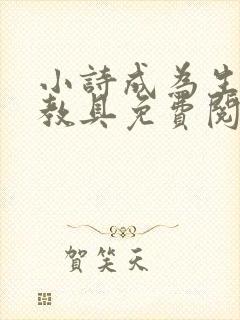 小詩成為生
教具免費閱
賀笑天